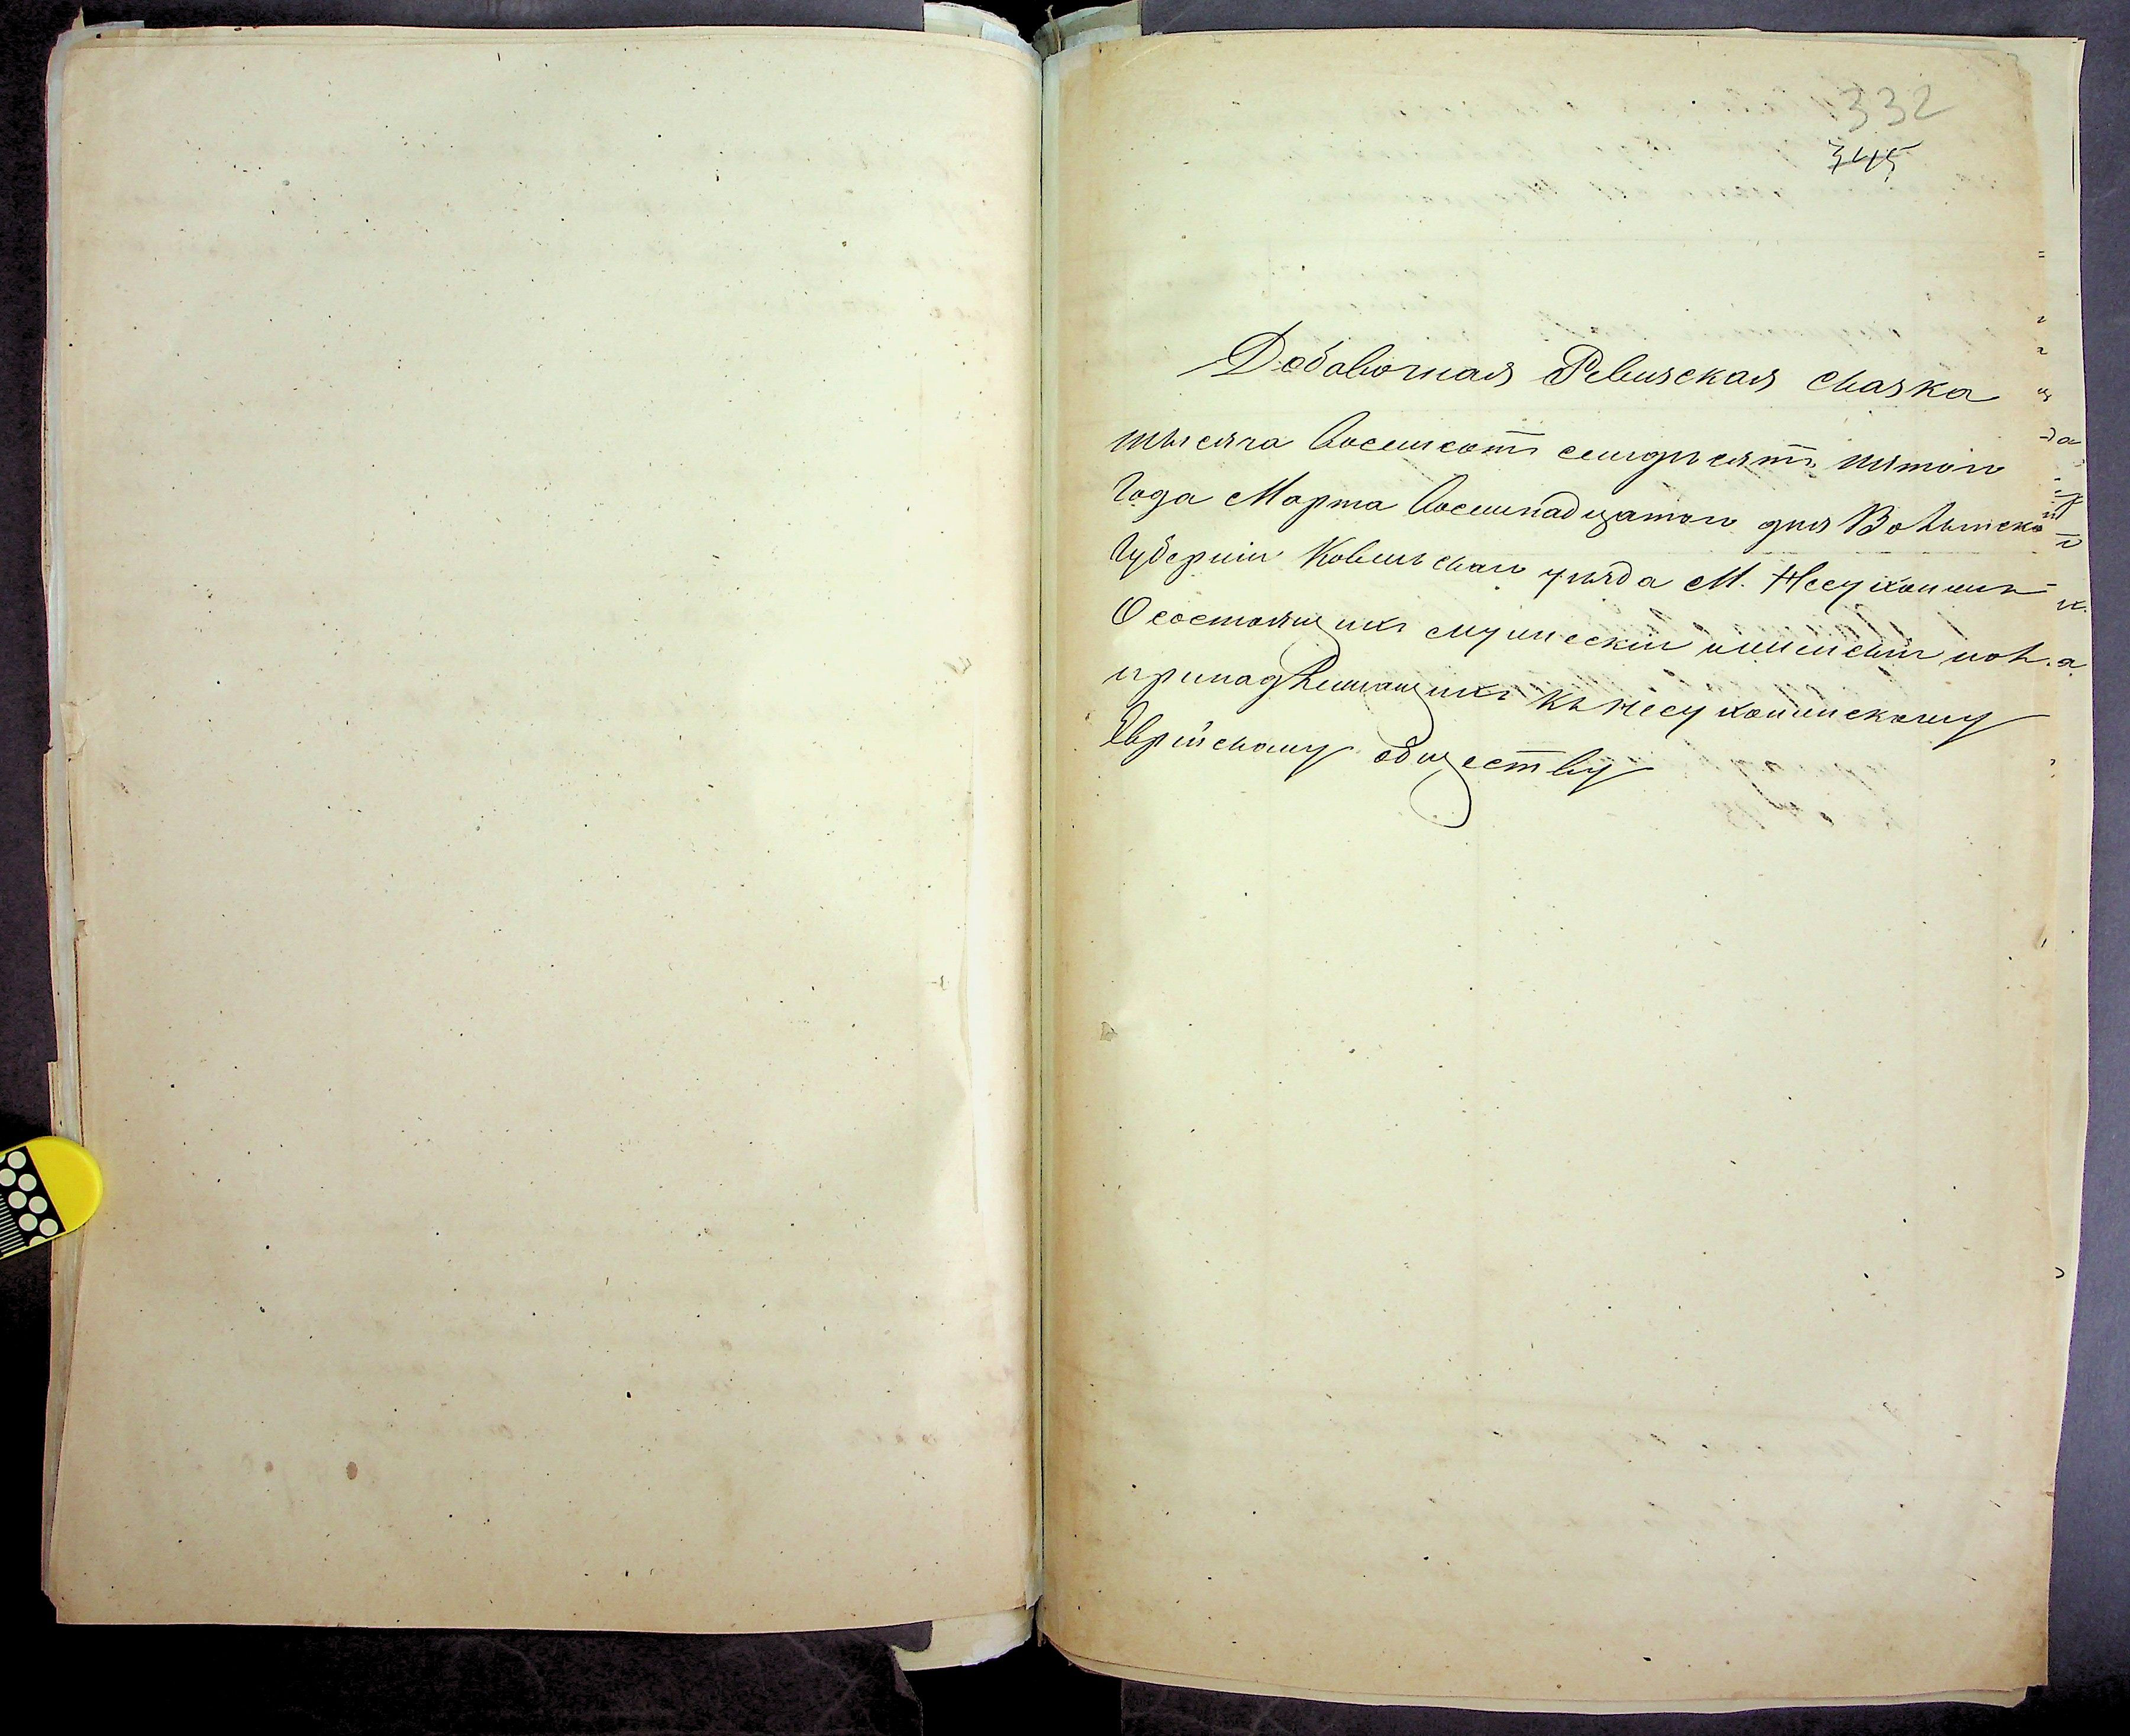 332
345
Добавочная Ревизская сказка
тысяча восемсотъ семдесятъ пятого
Года Марта восемнадцатого дня Волынской
Губерніи Ковельскаго уѣзда М. Несухоижъ
О состоящихъ мужескаго и женскаго пола
принадлежащихъ къ Несухоижскому
Еврейскому обществу